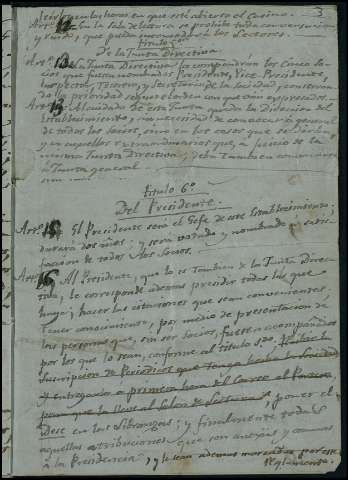 3
en que esté abierto el Casino.
12. En la Sala de lectura se prohibe toda conversación
y ruido, que pueda incomodar a los Lectores.
Titulo 5º
De la Junta Directiva
Artº 13. La Junta Directiva la compondran los cinco So-
cios que fueren nombrados Presidente, Vice-Presidente,
Inspector, Tesorero, y Secretario de la Sociedad,
la prioridad segun el orden con que van expresados.
Artº 14. Al cuidado de esta Junta queda la Direccion del
Establecimiento, sin necesidad de convocar á general
de todos los Socios, sino en los casos que se dirán,
y en aquellos extraordinarios que, á juicio de la
misma Junta Directiva, deba
á Junta general.
Titulo 6º
Del Presidente.
Artº 15. El Presidente será el Gefe de este Establecimiento:
durará dos años; y será votado y nombrado á satis-
faccion de todos los Socios.
Artº 16. Al Presidente, que lo es tambien de la Junta Direc-
tiva, le corresponde ademas presidir todas las que
haya; hacer las citaciones que sean convenientes.
Tener conocimiento, por medio de presentacion de
las personas que, sin ser socios, fuesen acompañados
por los que lo sean, conforme al titulo
suscripcion de Periodicos que tenga hecha la Sociedad
á primera hora del Correo
para que la lleve al Salon de Lectura: poner el
Dese en los Libramzas; y finalmente todas
aquellas atribuciones que son anejas y comunes
á la Presidencia, y le sean ademas marcadas por este
Reglamento.